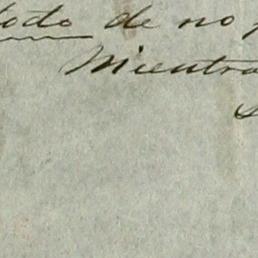 todo de no
Mientra